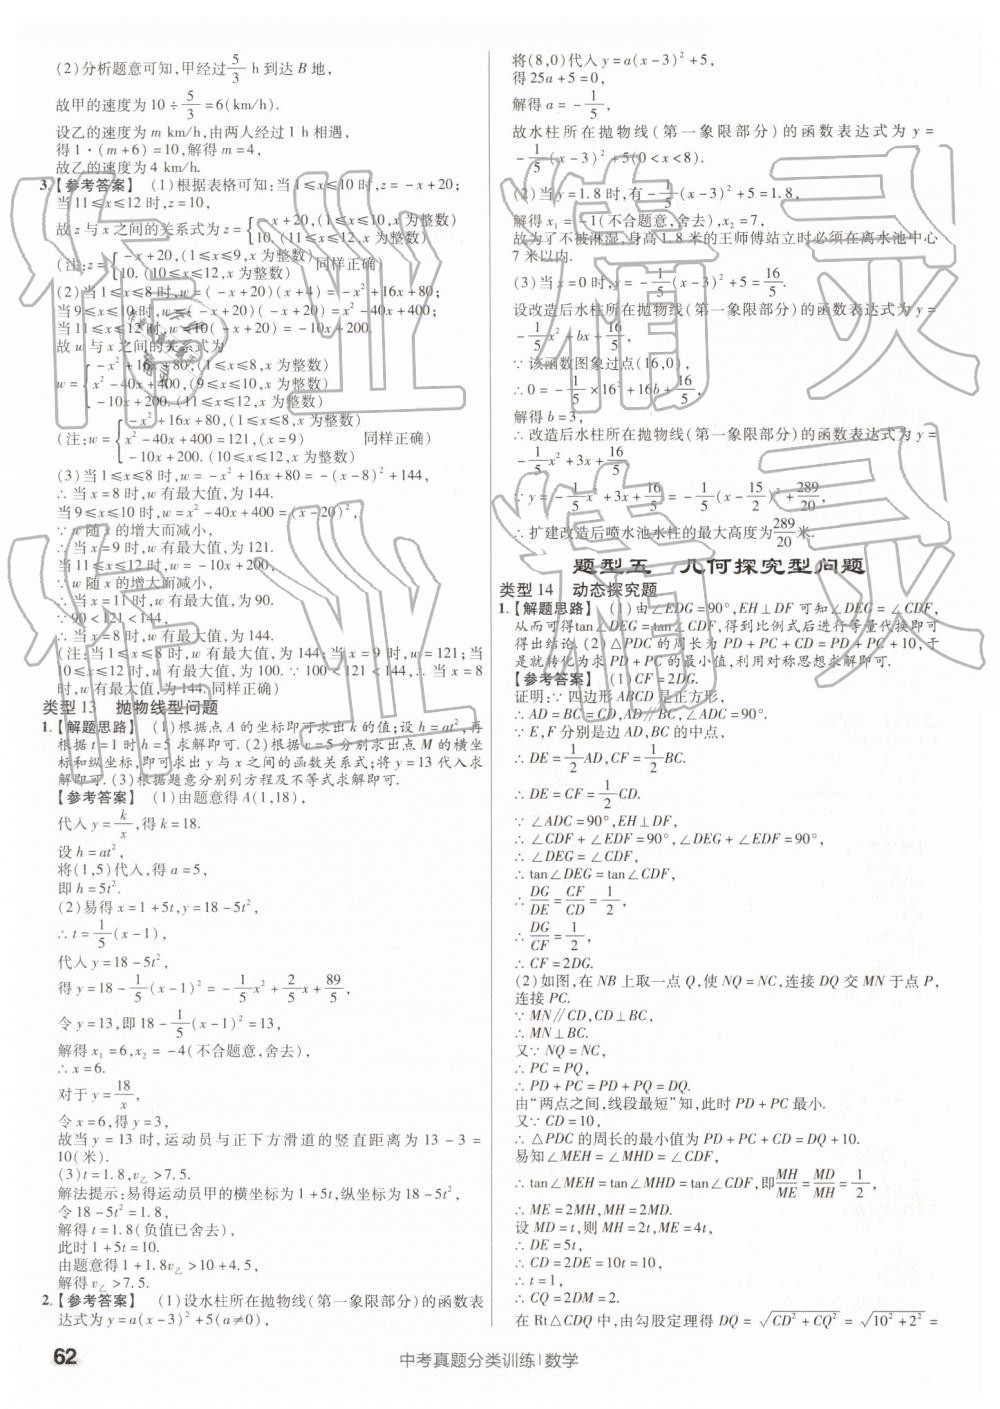 (2)分析题意可知,甲经过5/3 h到达B地,
故甲的速度为10÷5/3=6(km/h).
设乙的速度为m km/h,由两人经过1 h相遇,
得1·(m+6)=10,解得m=4,
故乙的速度为4 km/h.
3.【参考答案】 (1)根据表格可知:当1≤x≤10时,z=-x+20;
当11≤x≤12时,z=10,
故z与x之间的关系式为z={-x+20,(1≤x≤10,x为整数)
10.(11≤x≤12,x为整数)
(注:z={-x+20,(1≤x≤9,x为整数)
10.(10≤x≤12,x为整数) 同样正确)
(2)当1≤x≤8时,w=(-x+20)(x+4)=-x²+16x+80;
当9≤x≤10时,w=(-x+20)(-x+20)=x²-40x+400;
当11≤x≤12时,w=10(-x+20)=-10x+200.
故w与x之间的关系式为
w={-x²+16x+80,(1≤x≤8,x为整数)
x²-40x+400,(9≤x≤10,x为整数)
-10x+200.(11≤x≤12,x为整数)
(注:w={-x²+16x+80,(1≤x≤8,x为整数)
x²-40x+400=121,(x=9) 同样正确)
-10x+200.(10≤x≤12,x为整数)
(3)当1≤x≤8时,w=-x²+16x+80=-(x-8)²+144,
∴当x=8时,w有最大值,为144.
当9≤x≤10时,w=x²-40x+400=(x-20)²,
∵w随x的增大而减小,
∴当x=9时,w有最大值,为121.
当11≤x≤12时,w=-10x+200,
∵w随x的增大而减小,
∴当x=11时,w有最大值,为90.
∵90<121<144,
∴当x=8时,w有最大值,为144.
(注:当1≤x≤8时,w有最大值,为144;当x=9时,w有最大值,为121;当
10≤x≤12时,w有最大值,为100.∵100<121<144,∴当x=8
时,w有最大值,为144.同样正确)
类型13 抛物线型问题
1.【解题思路】 (1)根据点A的坐标即可求出k的值;设h=at²,再
根据t=1时h=5求解即可.(2)根据v=5分别求出点M的横坐
标和纵坐标,即可求出y与x之间的函数关系式;将y=13代入求
解即可.(3)根据题意分别列方程及不等式求解即可.
【参考答案】 (1)由题意得A(1,18),
代入y=k/x,得k=18.
设h=at²,
将(1,5)代入,得a=5,
即h=5t².
(2)易得x=1+5t,y=18-5t²,
∴t=1/5(x-1),
代入y=18-5t²,
得y=18-1/5(x-1)²=-1/5x²+2/5x+89/5,
令y=13,即18-1/5(x-1)²=13,
解得x₁=6,x₂=-4(不合题意,舍去),
∴x=6.
对于y=18/x,
令x=6,得y=3,
故当y=13时,运动员与正下方滑道的竖直距离为13-3=
10(米).
(3)t=1.8,v乙>7.5.
解法提示:易得运动员甲的横坐标为1+5t,纵坐标为18-5t²,
令18-5t²=1.8,
解得t=1.8(负值已舍去),
此时1+5t=10.
由题意得1+1.8v乙>10+4.5,
解得v乙>7.5.
2.【参考答案】 (1)设水柱所在抛物线(第一象限部分)的函数表
达式为y=a(x-3)²+5(a≠0),
将(8,0)代入y=a(x-3)²+5,
得25a+5=0,
解得a=-1/5,
故水柱所在抛物线(第一象限部分)的函数表达式为y=
-1/5(x-3)²+5(0<x<8).
(2)当y=1.8时,有-1/5(x-3)²+5=1.8,
解得x₁=-1(不合题意,舍去),x₂=7,
故为了不被淋湿,身高1.8米的王师傅站立时必须在离水池中心
7米以内.
(3)当x=0时,y=-1/5(x-3)²+5=16/5.
设改造后水柱所在抛物线(第一象限部分)的函数表达式为y=
-1/5x²+bx+16/5,
∵该函数图象过点(16,0),
∴0=-1/5×16²+16b+16/5,
解得b=3,
∴改造后水柱所在抛物线(第一象限部分)的函数表达式为y=
-1/5x²+3x+16/5.
∵y=-1/5x²+3x+16/5=-1/5(x-15/2)²+289/20,
∴扩建改造后喷水池水柱的最大高度为289/20米.
题型五 几何探究型问题
类型14 动态探究题
1.【解题思路】 (1)由∠EDG=90°,EH⊥DF可知∠DEG=∠CDF,
从而可得tan∠DEG=tan∠CDF,得到比例式后进行等量代换即可
得出结论.(2)△PDC的周长为PD+PC+CD=PD+PC+10,于
是就转化为求PD+PC的最小值,利用对称思想求解即可.
【参考答案】 (1)CF=2DG.
证明:∵四边形ABCD是正方形,
∴AD=BC=CD,AD∥BC,∠ADC=90°.
∵E,F分别是边AD,BC的中点,
∴DE=1/2AD,CF=1/2BC.
∴DE=CF=1/2CD.
∵∠ADC=90°,EH⊥DF,
∴∠CDF+∠EDF=90°,∠DEG+∠EDF=90°,
∴∠DEG=∠CDF,
∴tan∠DEG=tan∠CDF,
∴DG/DE=CF/CD=1/2,
∴DG/CF=1/2,
∴CF=2DG.
(2)如图,在NB上取一点Q,使NQ=NC,连接DQ交MN于点P,
连接PC.
∵MN∥CD,CD⊥BC,
∴MN⊥BC.
又∵NQ=NC,
∴PC=PQ,
∴PD+PC=PD+PQ=DQ.
由“两点之间,线段最短”知,此时PD+PC最小.
又∵CD=10,
∴△PDC的周长的最小值为PD+PC+CD=DQ+10.
易知∠MEH=∠MHD=∠CDF,
∴tan∠MEH=tan∠MHD=tan∠CDF,即MH/ME=MD/MH=1/2,
∴ME=2MH,MH=2MD.
设MD=t,则MH=2t,ME=4t,
∴DE=5t,
∴CD=2DE=10t=10,
∴t=1,
∴CQ=2DM=2.
在Rt△CDQ中,由勾股定理得DQ=√(CD²+CQ²)=√(10²+2²)=
62
中考真题分类训练|数学
作业精灵
作业精灵